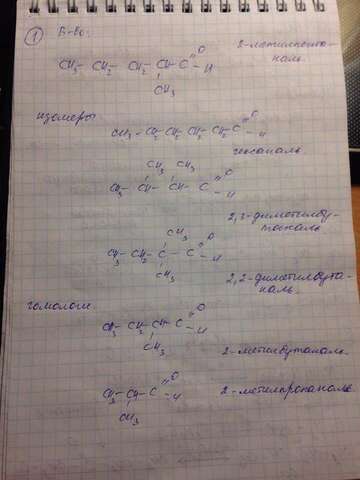 ① В-во:
CH3 - CH2 - CH2 - CH - C =O - H
CH3
2-метилпента-
наль.
изомеры
CH3 - CH2 - CH2 - CH2 - CH2 - C =O - H
гексаналь
CH3 CH3
CH3 - CH - CH - C =O - H
2,3-диметилбу-
таналь
CH3
CH3 - CH2 - C - C =O - H
CH3
2,2-диметилбута-
наль.
гомологи
CH3 - CH2 - CH - C =O - H
CH3
2-метилбутаналь.
CH3 - CH - C =O - H
CH3
2-метилпропаналь.